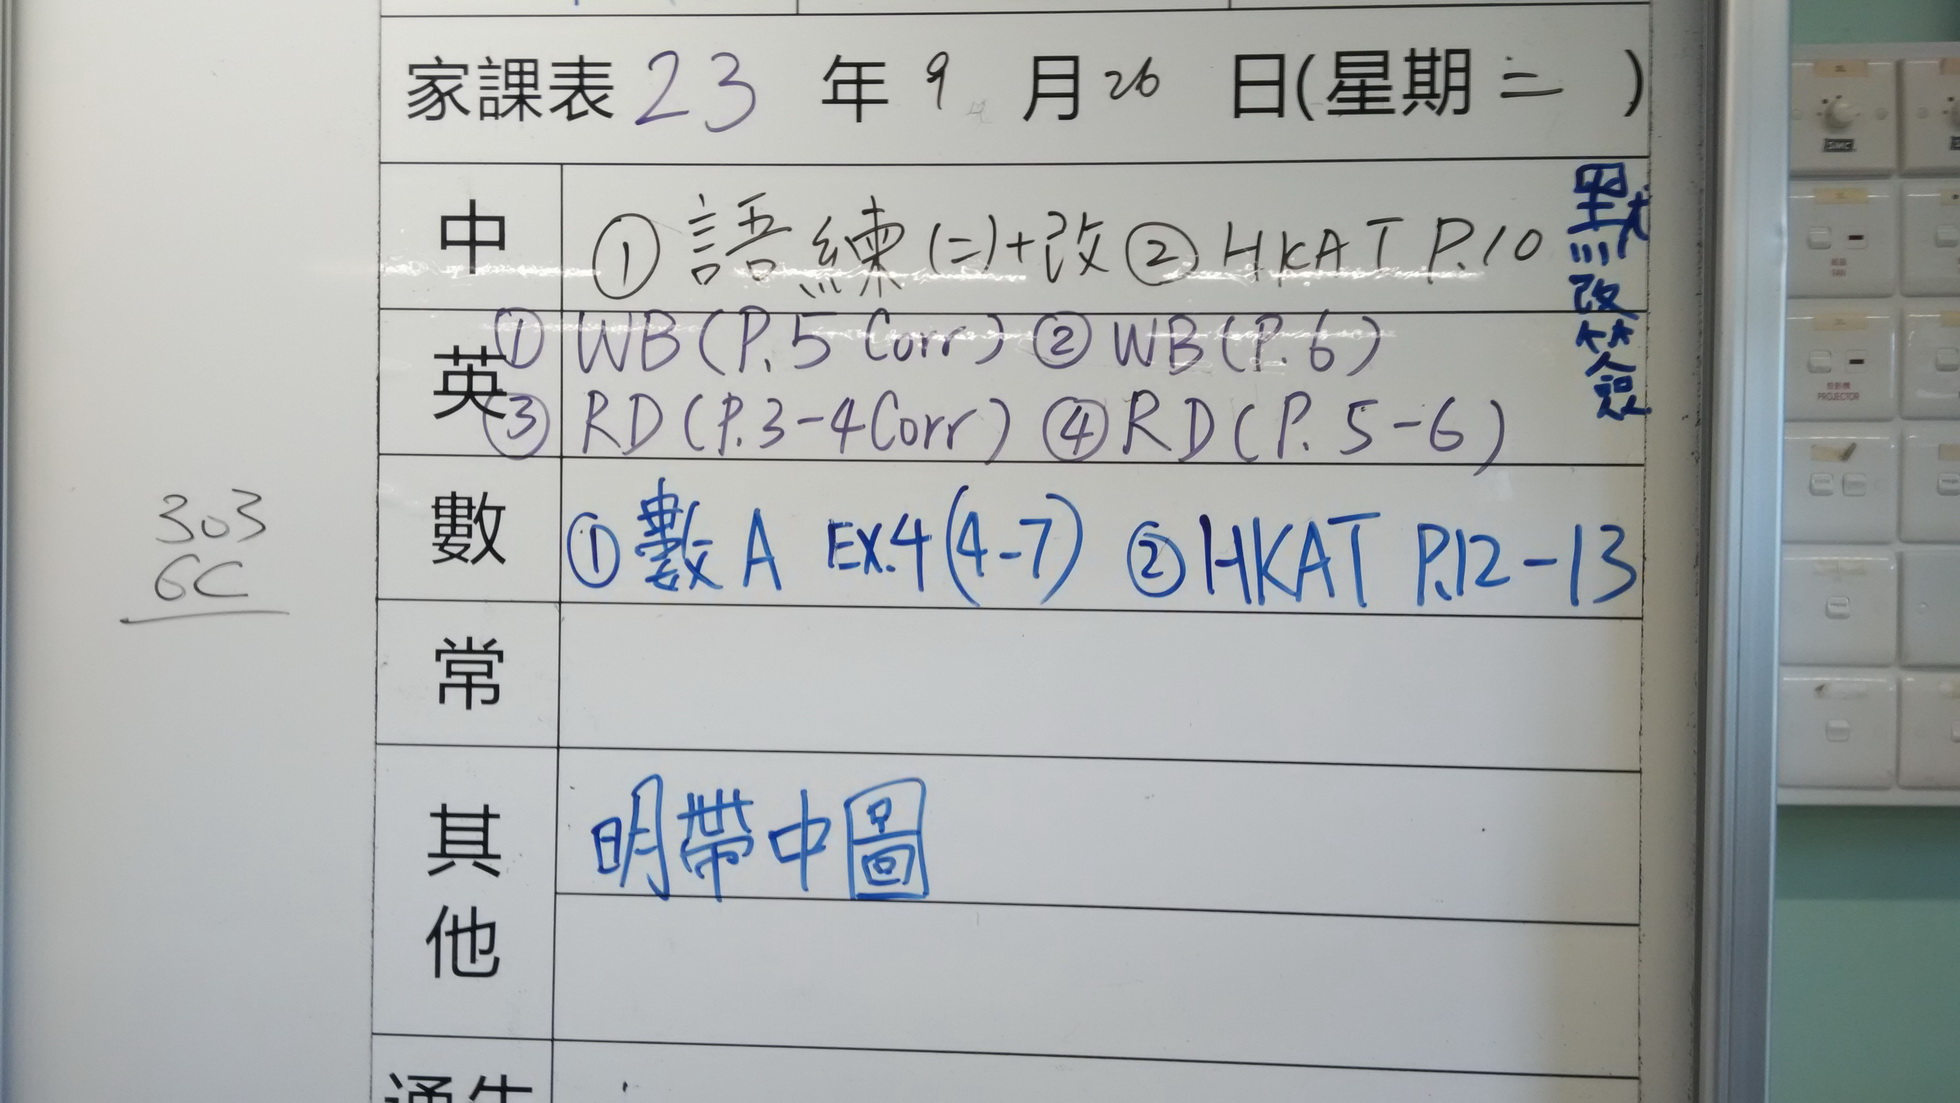 家課表 23 年 9 月 26 日(星期 二 )
中 ① 語練(二)+改 ② HKAT P.10
默改簽
英 ① WB (P.5 Corr) ② WB (P.6)
③ RD (P.3-4 Corr) ④ RD (P. 5-6)
數 ① 數A EX.4 (4-7) ② HKAT P.12-13
303
6C
常
其他 明帶中圖
SMC
FAN
PROJECTOR